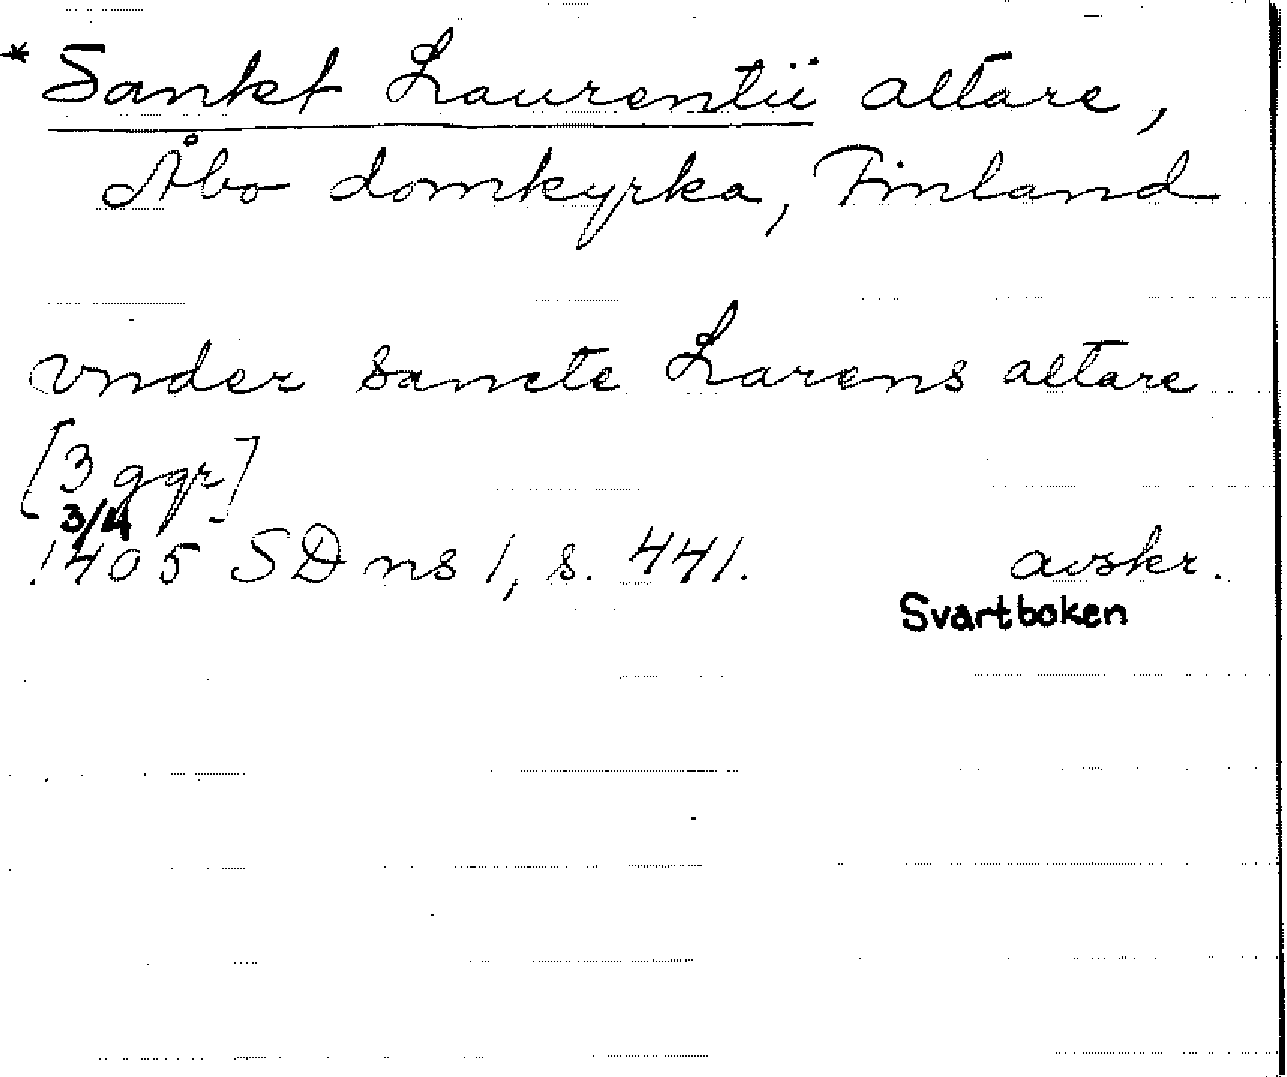 * Sankt Laurentii altare,
Åbo domkyrka, Finland
vnder sancte Larens altare
[3 ggr]
3/4
1405 SD ns 1, s. 441. avskr.
Svartboken